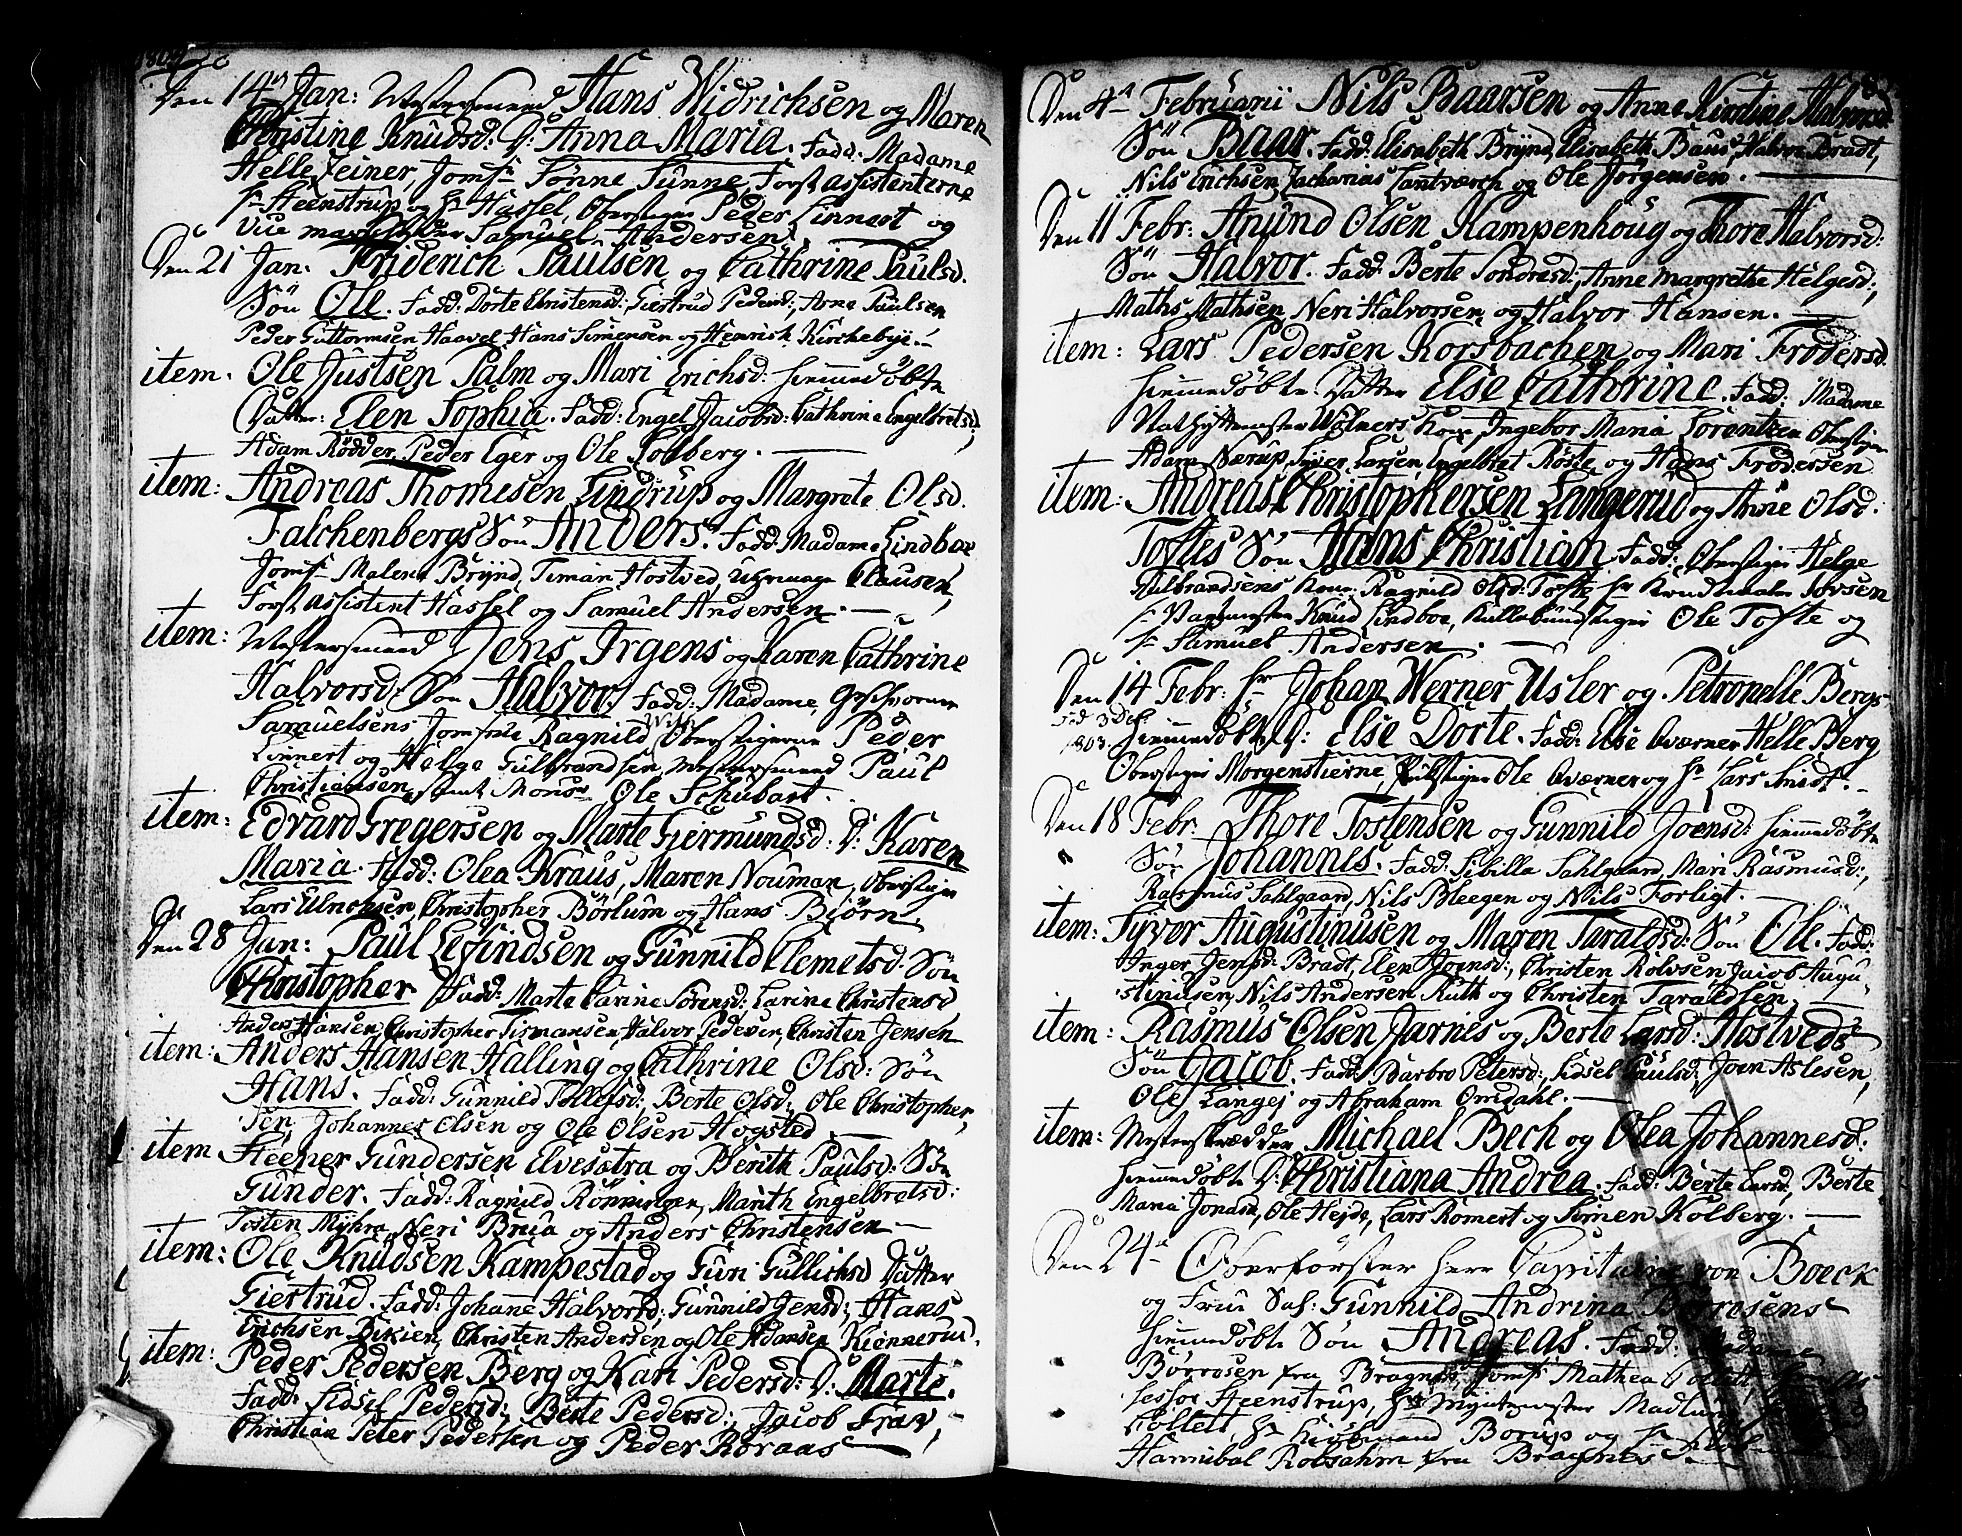 Den 14de Jan: Mestersmed Hans Widrichsen og Maren
Christine Knudsd. D: Anna Maria. Fadd: Madame
Helle Zeiner, Jomf. Sønne Sunne, Forst assistenterne
Hr Steenstrup og Hr Hassel, Oberstiger Peder Linnert og
Samuel Andersen.
Den 21 Jan. Friderich Paulsen og Cathrine Paulsd.
Sön Ole. Fadd: Dorte Christensd:, Giertrud Pedersd:, Arne Paulsen
Peder Guttormsen Haavel, Hans Simensen og Henrich Kirchebye.
item. Ole Justsen Palm og Mari Erichsd: hiemmedøbte
Datter: Elen Sophia. Fadd: Engel Jacobsd: Cathrine Engelbretsd:,
Adam Rödder, Peder Eger og Ole Solberg.
item: Andreas Thomesen Lindrup og Margrete Olsd.
Falchenbergs Sön Anders. Fadd: Madame Lindboe
Jomf. Malene Brynd, Timan Hostved, Clausen,
Forst assistent Hassel og Samuel Andersen.
item: Mestersmed Jens Irgens og Karen Cathrine
Halvorsd: Sön Halvor. Fadd: Madame, Geschworner
Samuelsens, Jomfrue Ragnild With Oberstigerne Peder
Linnert og Helge Gulbrandsen, Mestersmed Paul
Christiansen, Ole Schubart.
item: Edvard Gregersen og Marte Giermundsd: D: Karen
Maria. Fadd: Olea Kraus, Maren Nouman, Oberstiger
Lars Ulrichsen, Christopher Börlum og Hans Björn.
Den 28 Jan: Paul Lefindsen og Gunnild Clemetsd: Sön
Christopher. Fadd: Marte Carine Sörensd: Larine Christensd
Anders Hansen, Christopher Tismansen, Halvor Pedersen, Christen Jensen
item: Anders Hansen Halling og Cathrine Olsd: Sön
Hans. Fadd: Gunnild Tollefsd: Berte Olsd:, Ole Christopher,
sen, Johannes Elsen og Ole Olsen Hogsted.
item Steener Gundersen Elvesetra og Berith Paulsd: Sön
Gunder. Fadd: Ragnild Rönningen, Marith Engelbretsd:
Tosten Myhra, Neri Brua og Anders Christensen
item: Ole Knudsen Kampestad og Guri Gullichsd Datter
Giertrud. Fadd: Johane Halvorsd: Gunnild Jensd:, Hans
Erichsen Bikien, Christen Andersen og Ole Adansen Kiennerud.
item: Peder Pedersen Berg og Kari Pedersd: D: Marte.
Fadd: Sidsel Pedersd: Berte Pedersd:, Jacob Fray,
Christian Peter Pedersen og Peder Roraas
Den 4de Februarii Nils Baarsen og Anne Kirstine Halvorsd.
Sön Baar. Fadd: Elisabeth Brynd, Elisabeth Baus, Halvor Bradt,
Nils Erichsen, Zacharias Santværch og Ole Jörgensen.
Den 11 Febr: Anund Olsen Kampenhoug og Thore Halvorsd:
Sön Halvor. Fadd: Berte Tondresd:, Anne Margrethe Helgesd:,
Maths Mathsen, Neri Halvorsen og Halvor Hansen.
item: Lars Pedersen Korsbachen og Mari Frodersd.
hiemmedøbte Datter Else Cathrine. Fadd: Madame
Wölners Kone, Ingebor Maria Lorentzen Oberstiger
Adam Nærup, Syver Larsen, Engelbret Röste og Hans Frodersen
item: Andreas Christophersen Langerud og Anne Olsd.
Toftes Sön Hans Christian. Fadd: Oberstiger Helge
Gulbrandsens Kone, Ragnild Olsd: Tofte, Hr Iversen
Knud Lindboe, Ole Tofte og
Hr Samuel Andersen.
Den 14 Febr: Hr Johan Werner Usler og Petronelle Bergs
Fød 3 Dec:
1803. hiemmedøbte D: Else Dorte. Fadd: Else Qværner Helle Berg
Oberstiger Morgenstierne, Ole Qværner og Hr Lars Smidt.
Den 18 Febr. Thore Tostensen og Gunnild Joensd: hiemmedøbte
Sön Johannes. Fadd: Sibilla Sahlgaard, Mari Rasmusd:,
Rasmus Sahlgaard, Nils Bleegen og Nils Forligt.
item: Syver Augustinusen og Maren Taraldsd: Sön Ole. Fadd:
Inger Jensd: Bradt, Elen Joensd:, Christen Rolvsen, Jacob Augu-
stinusen, Nils Andersen Ruth og Christen Taraldsen.
item: Rasmus Olsen Jarnes og Berte Larsd: Hostveds
Sön Jacob. Fadd: Barbro Petersd:, Sidsel Paulsd:, Joen Aslesen,
Ole Langej og Abraham Omdahl.
item: Mesterskrædder Michael Bech og Olea Johannesd:
hiemmedøbte D: Christiana Andrea. Fadd: Berte Larsd, Berte
Maria Jonasd, Ole Hejde, Lars Romert og Simen Kolberg.
Den 24de Oberförster Herr Cappitaine von Boeck
og Frue Sal: Gunnild Andrina Börresens
hiemmedøbte Sön Andreas. Fadd: Madame
Börresen fra Bragnes, Jomf. Mathea Collett
Steenstrup, Hr Myntmester Madlung
Collett, Hr Kiöbmand Borup og Hr
Hannibal Kolsahm fra Bragnes.